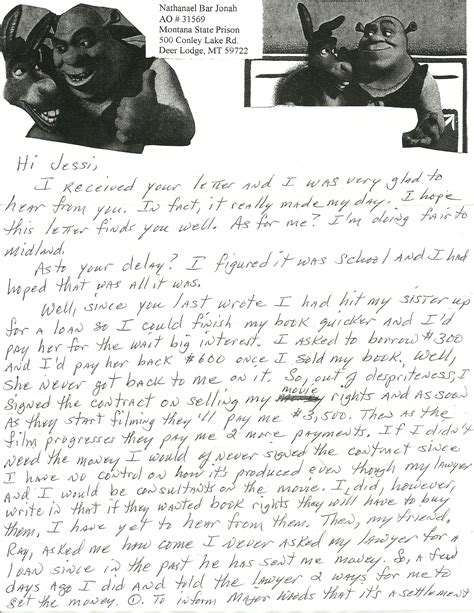 Nathanael Bar Jonah
AO # 31569
Montana State Prison
500 Conley Lake Rd.
Deer Lodge, MT 59722
Hi Jessi,
I received your letter and I was very glad to
hear from you. In fact, it really made my day. I hope
this letter finds you well. As for me? I'm doing fair to
midland.
As to your delay? I figured it was school and I had
hoped that was all it was.
Well, since you last wrote I had hit my sister up
for a loan so I could finish my book quicker and I'd
pay her for the wait big interest. I asked to borrow $300
and I'd pay her back $600 once I sold my book. Well,
she never got back to me on it. So, out of despriteness, I
signed the contract on selling my movie rights and as soon
as they start filming they'll pay me $3,500. Then as the
film progresses they pay me 2 more payments. If I didn't
need the money I would of never signed the contract since
I have no control on how it's produced even though my lawyer
and I would be consultants on the movie. I did, however,
write in that if they wanted book rights they will have to buy
them. I have yet to hear from them. Then, my friend,
Ray, asked me how come I never asked my lawyer for a
loan since in the past he has sent me money. So, a few
days ago I did and told the lawyer 2 ways for me to
get the money. ①. To inform Major Woods that it's a settlement